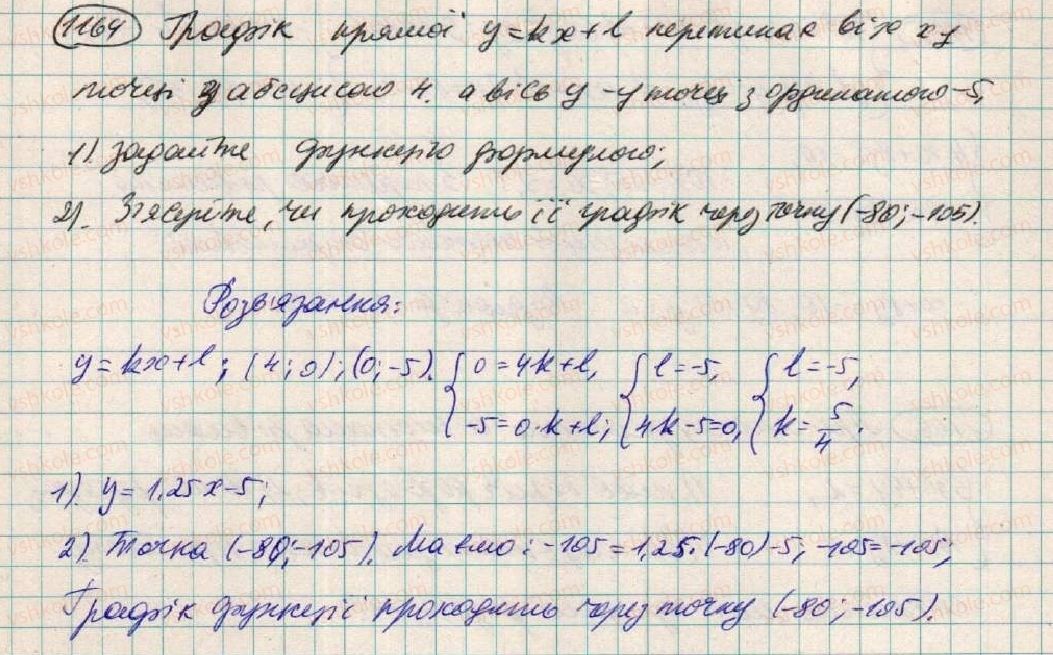 1164 Графік прямої y=kx+l перетинає вісь x у
точці з абсцисою 4. а вісь y - у точці з ординатою -5.
1). задайте функцію формулою;
2). З'ясуйте, чи проходить її графік через точку (-80; -105).
Розв'язання:
y=kx+l; (4; 0); (0; -5). { 0=4k+l, -5=0·k+l; { l=-5, 4k-5=0, { l=-5, k=5/4.
1). y=1.25x-5;
2). Точка (-80; -105). Маємо: -105=1,25·(-80)-5, -105=-105;
Графік функції проходить через точку (-80; -105).